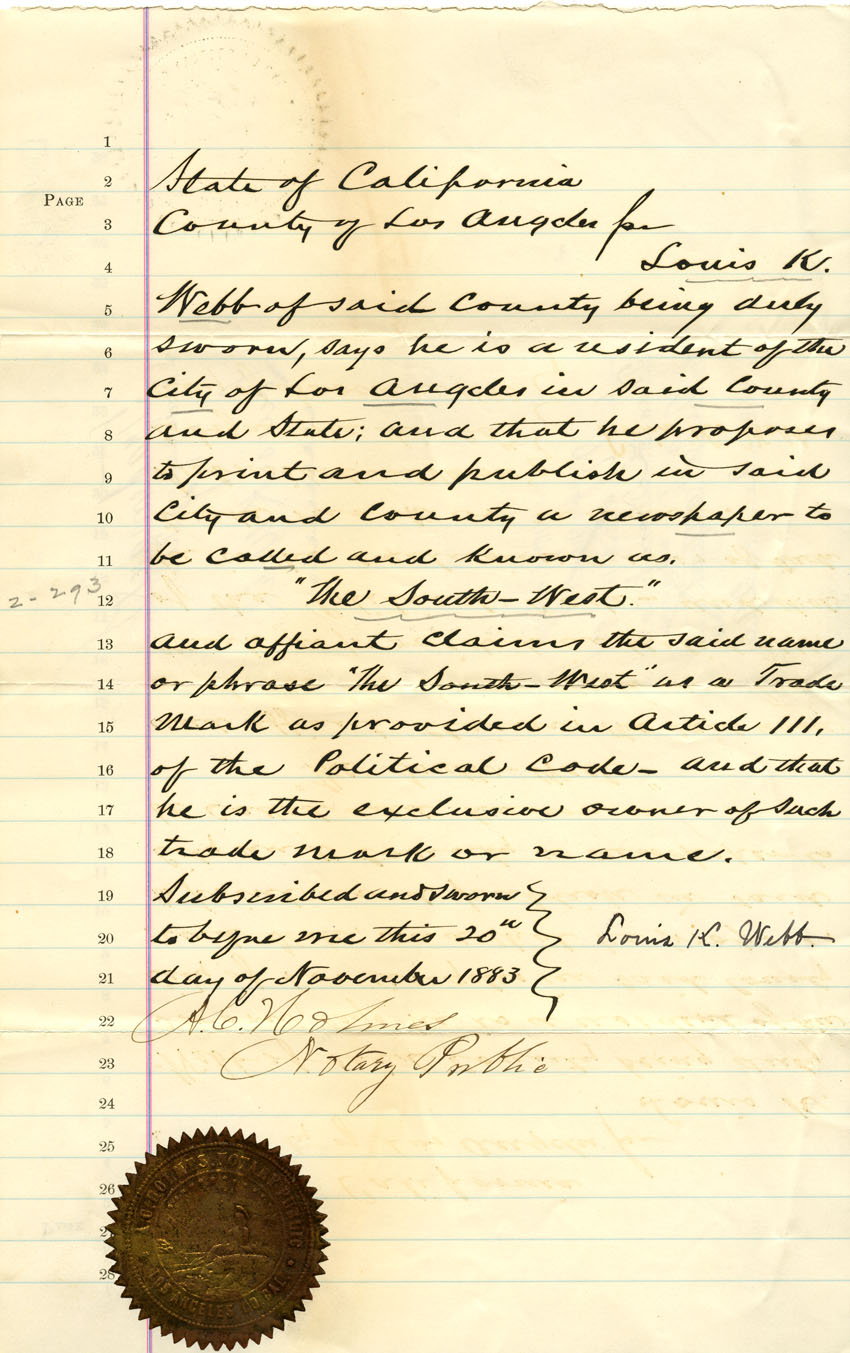 1
2 State of California
PAGE
3 County of Los Angeles } ss
4 Louis K.
5 Webb of said County being duly
6 sworn, says he is a resident of the
7 City of Los Angeles in said County
8 and State; and that he proposes
9 to print and publish in said
10 City and County a newspaper to
11 be called and known as.
2-293
12 "The South-West."
13 and affiant claims the said name
14 or phrase "The South-West" as a Trade
15 Mark as provided in Article III,
16 of the Political Code - and that
17 he is the exclusive owner of such
18 trade mark or name.
19 Subscribed and sworn
20 to before me this 20th Louis K. Webb.
21 day of November 1883
22 A.C. Holmes
23 Notary Public
24
25
26
27
28
A.C. HOLMES NOTARY PUBLIC
LOS ANGELES CO. CAL.